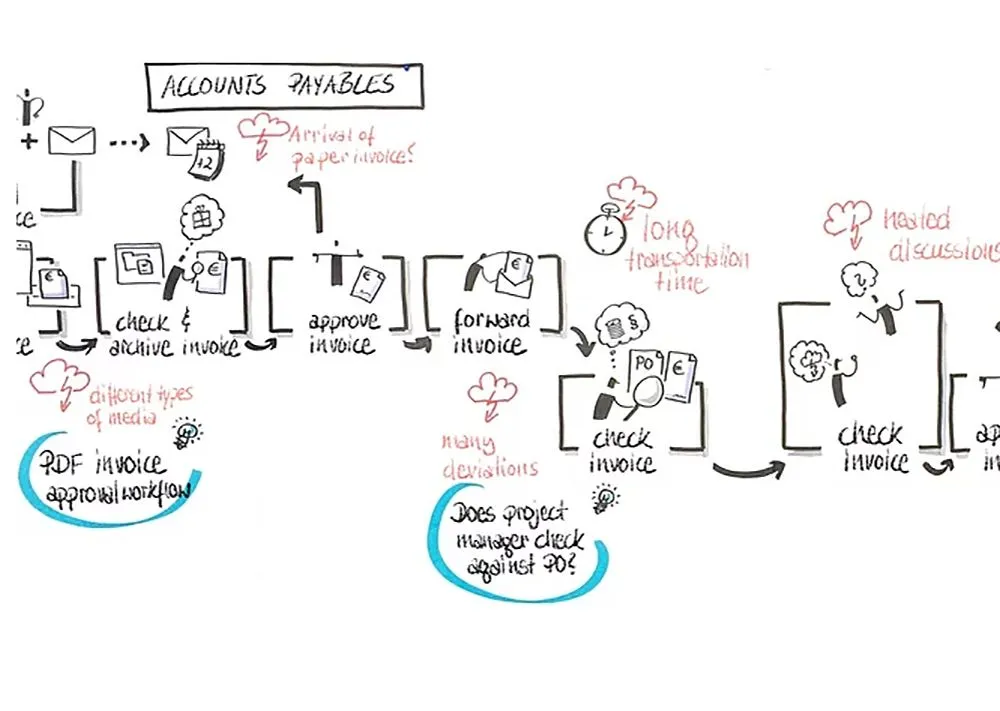 ACCOUNTS PAYABLES
+
+2
Arrival of
paper invoice?
ce
long
transportation
time
heated
discussions
€
€
€
€
§
PO
€
ce
check &
archive invoice
approve
invoice
forward
invoice
check
invoice
check
invoice
ap
in
different types
of media
many
deviations
PDF invoice
approval workflow
Does project
manager check
against PO?